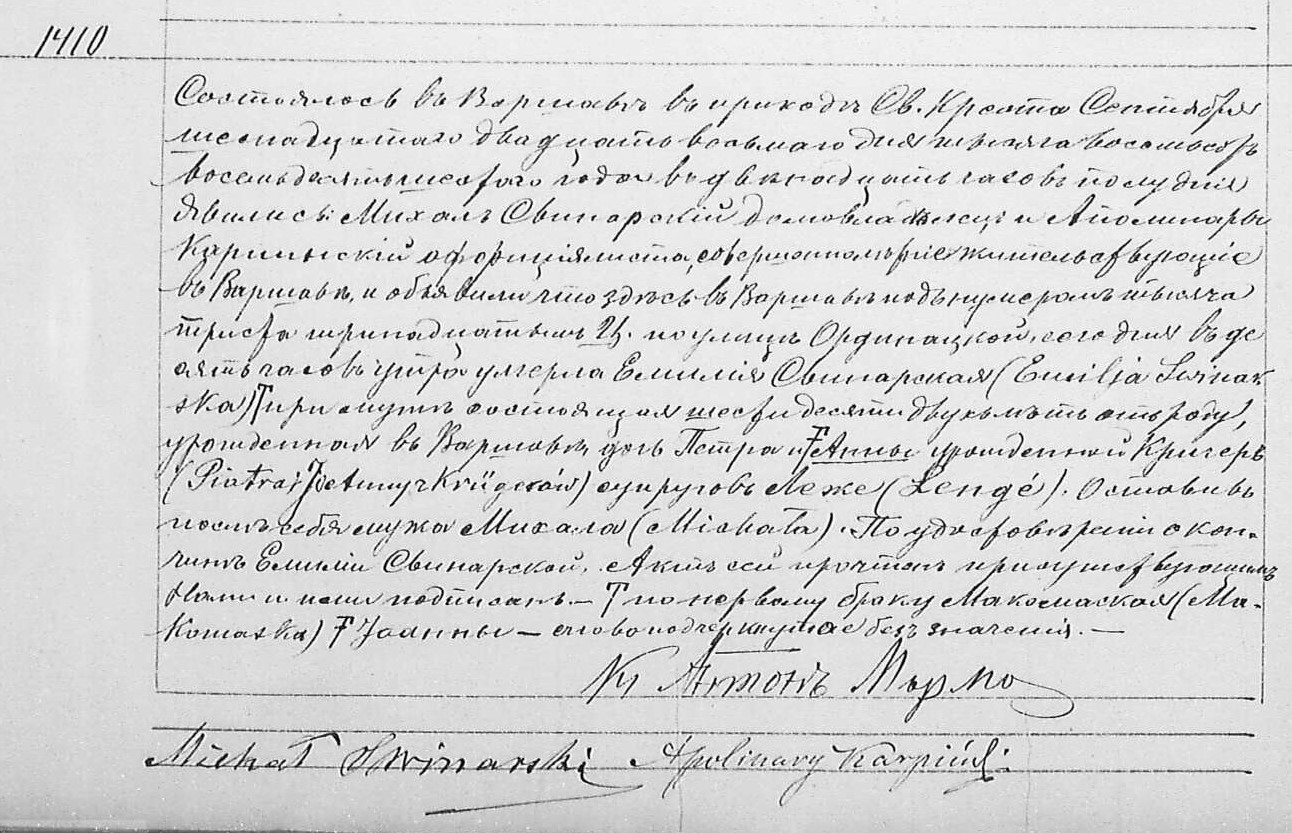 1410
Состоялось въ Варшавѣ въ приходѣ Св. Креста Сентября
шеснадцатаго двадцать восьмаго дня тысяча восемьсотъ
восемьдесятъ шестаго года въ двѣнадцать часовъ полудня
явились: Михалъ Свинарскій домовладѣлецъ и Аполинарый
Карпинскій оффиціялиста, совершеннолѣтніе жительствующіе
въ Варшавѣ, и объявили что здѣсь въ Варшавѣ подъ нумеромъ тысяча
триста тринадцатымъ Ц. по улицѣ Ординацкой, сего дня въ де
сять часовъ утра умерла Емилія Свинарская (Emilja Swinar
ska) Т при мужѣ состоящая шестидесяти двухъ лѣтъ отъ роду,
урожденная въ Варшавѣ, дочь Петра и Ŧ Анны урожденной Кригеръ
(Piotra i Ŧ de Anny z Krügerów) супруговъ Леже (Lengé). Оставивъ
послѣ себя мужа Михала (Michała). По удостовѣреніи о кон-
чинѣ Емиліи Свинарской, Актъ сей прочтенъ присутствующимъ
Нами и ими подписанъ. — Т по первому браку Макомаская (Ma-
komaska) Ŧ Іоанны — слово подчеркнутое безъ значенія. —
Кс Антонъ Мырмо
Michał Swinarski Apolinary Karpiński